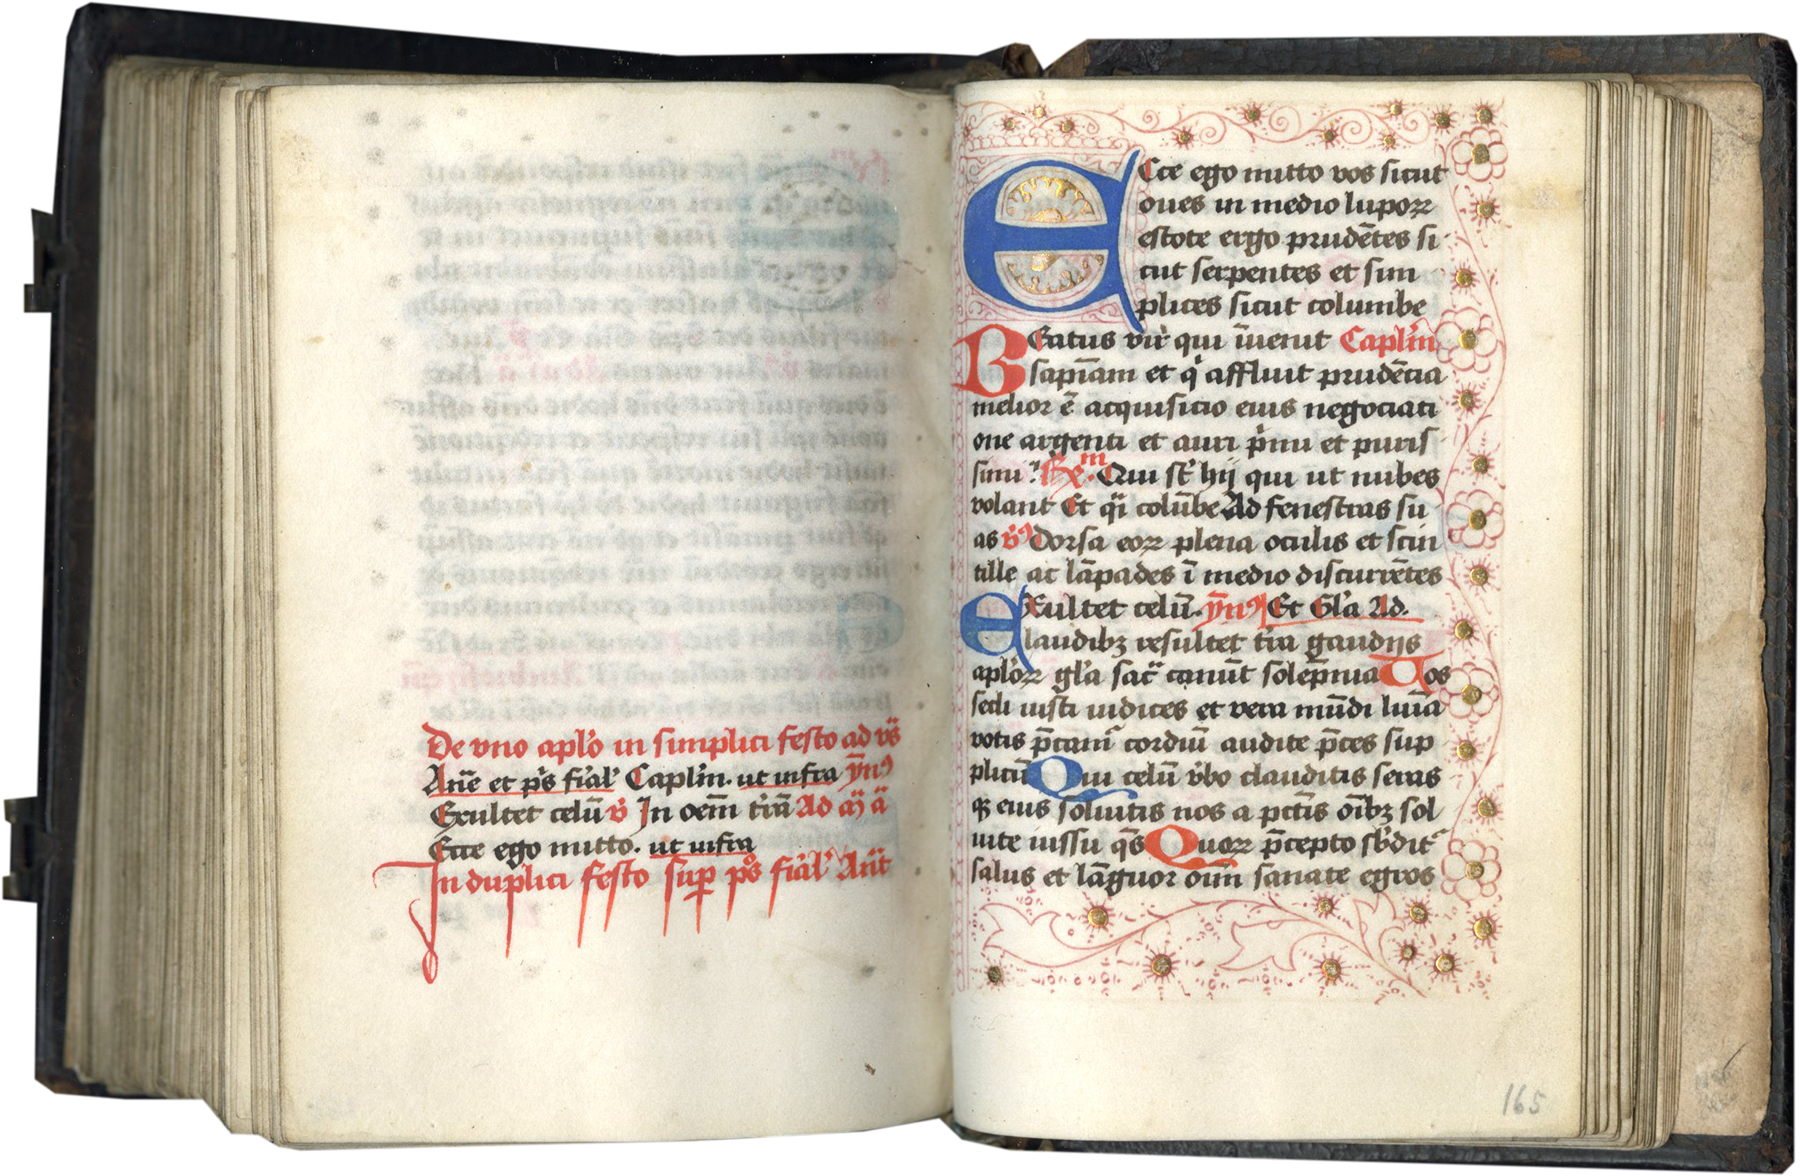 De vno aplo in simplici festo ad vs̄
Ane et ps̄ fial' Caplm. ut infra ȳn9
Exultet celū v̄ In oem̄ trā Ad m̄ ā
Ecce ego mitto. ut infra
In duplici festo sup̄ ps̄ fial' Ant̄
Ecce ego mitto vos sicut
oues in medio lupoꝝ
estote ergo prudētes si
cut serpentes et sim
plices sicut columbe
Beatus vir qui īuenit Caplm̄
sapīam et q̇ affluit prudēcia
melior ē acquisicio eius negociati
one argenti et auri p̄mi et puris
simi. Rm̄. Qui st̄ hij qui ut nubes
volant Et q̄i colūbe Ad fenestras su
as v̄ Dorsa eoꝝ plena oculis et scin
tille ac lāpades ī medio discurrētes
Exultet celū. ȳn9 Et Gl'a Ad.
laudibꝫ resultet t̄ra gaudijs
aploꝝ gl'a sac̄ canūt solēpnia Vos
secli iusti iudices et vera mūdi lumīa
votis p̄cam᷒ cordiū audite p̄ces sup
plicū Qui celū v̄bo clauditis seras
qꝫ eius soluitis nos a pctīs oībꝫ sol
uite iussu q̄s Quoꝝ p̄cepto sb'dit᷒
salus et lāguor oīm sanate egros
165